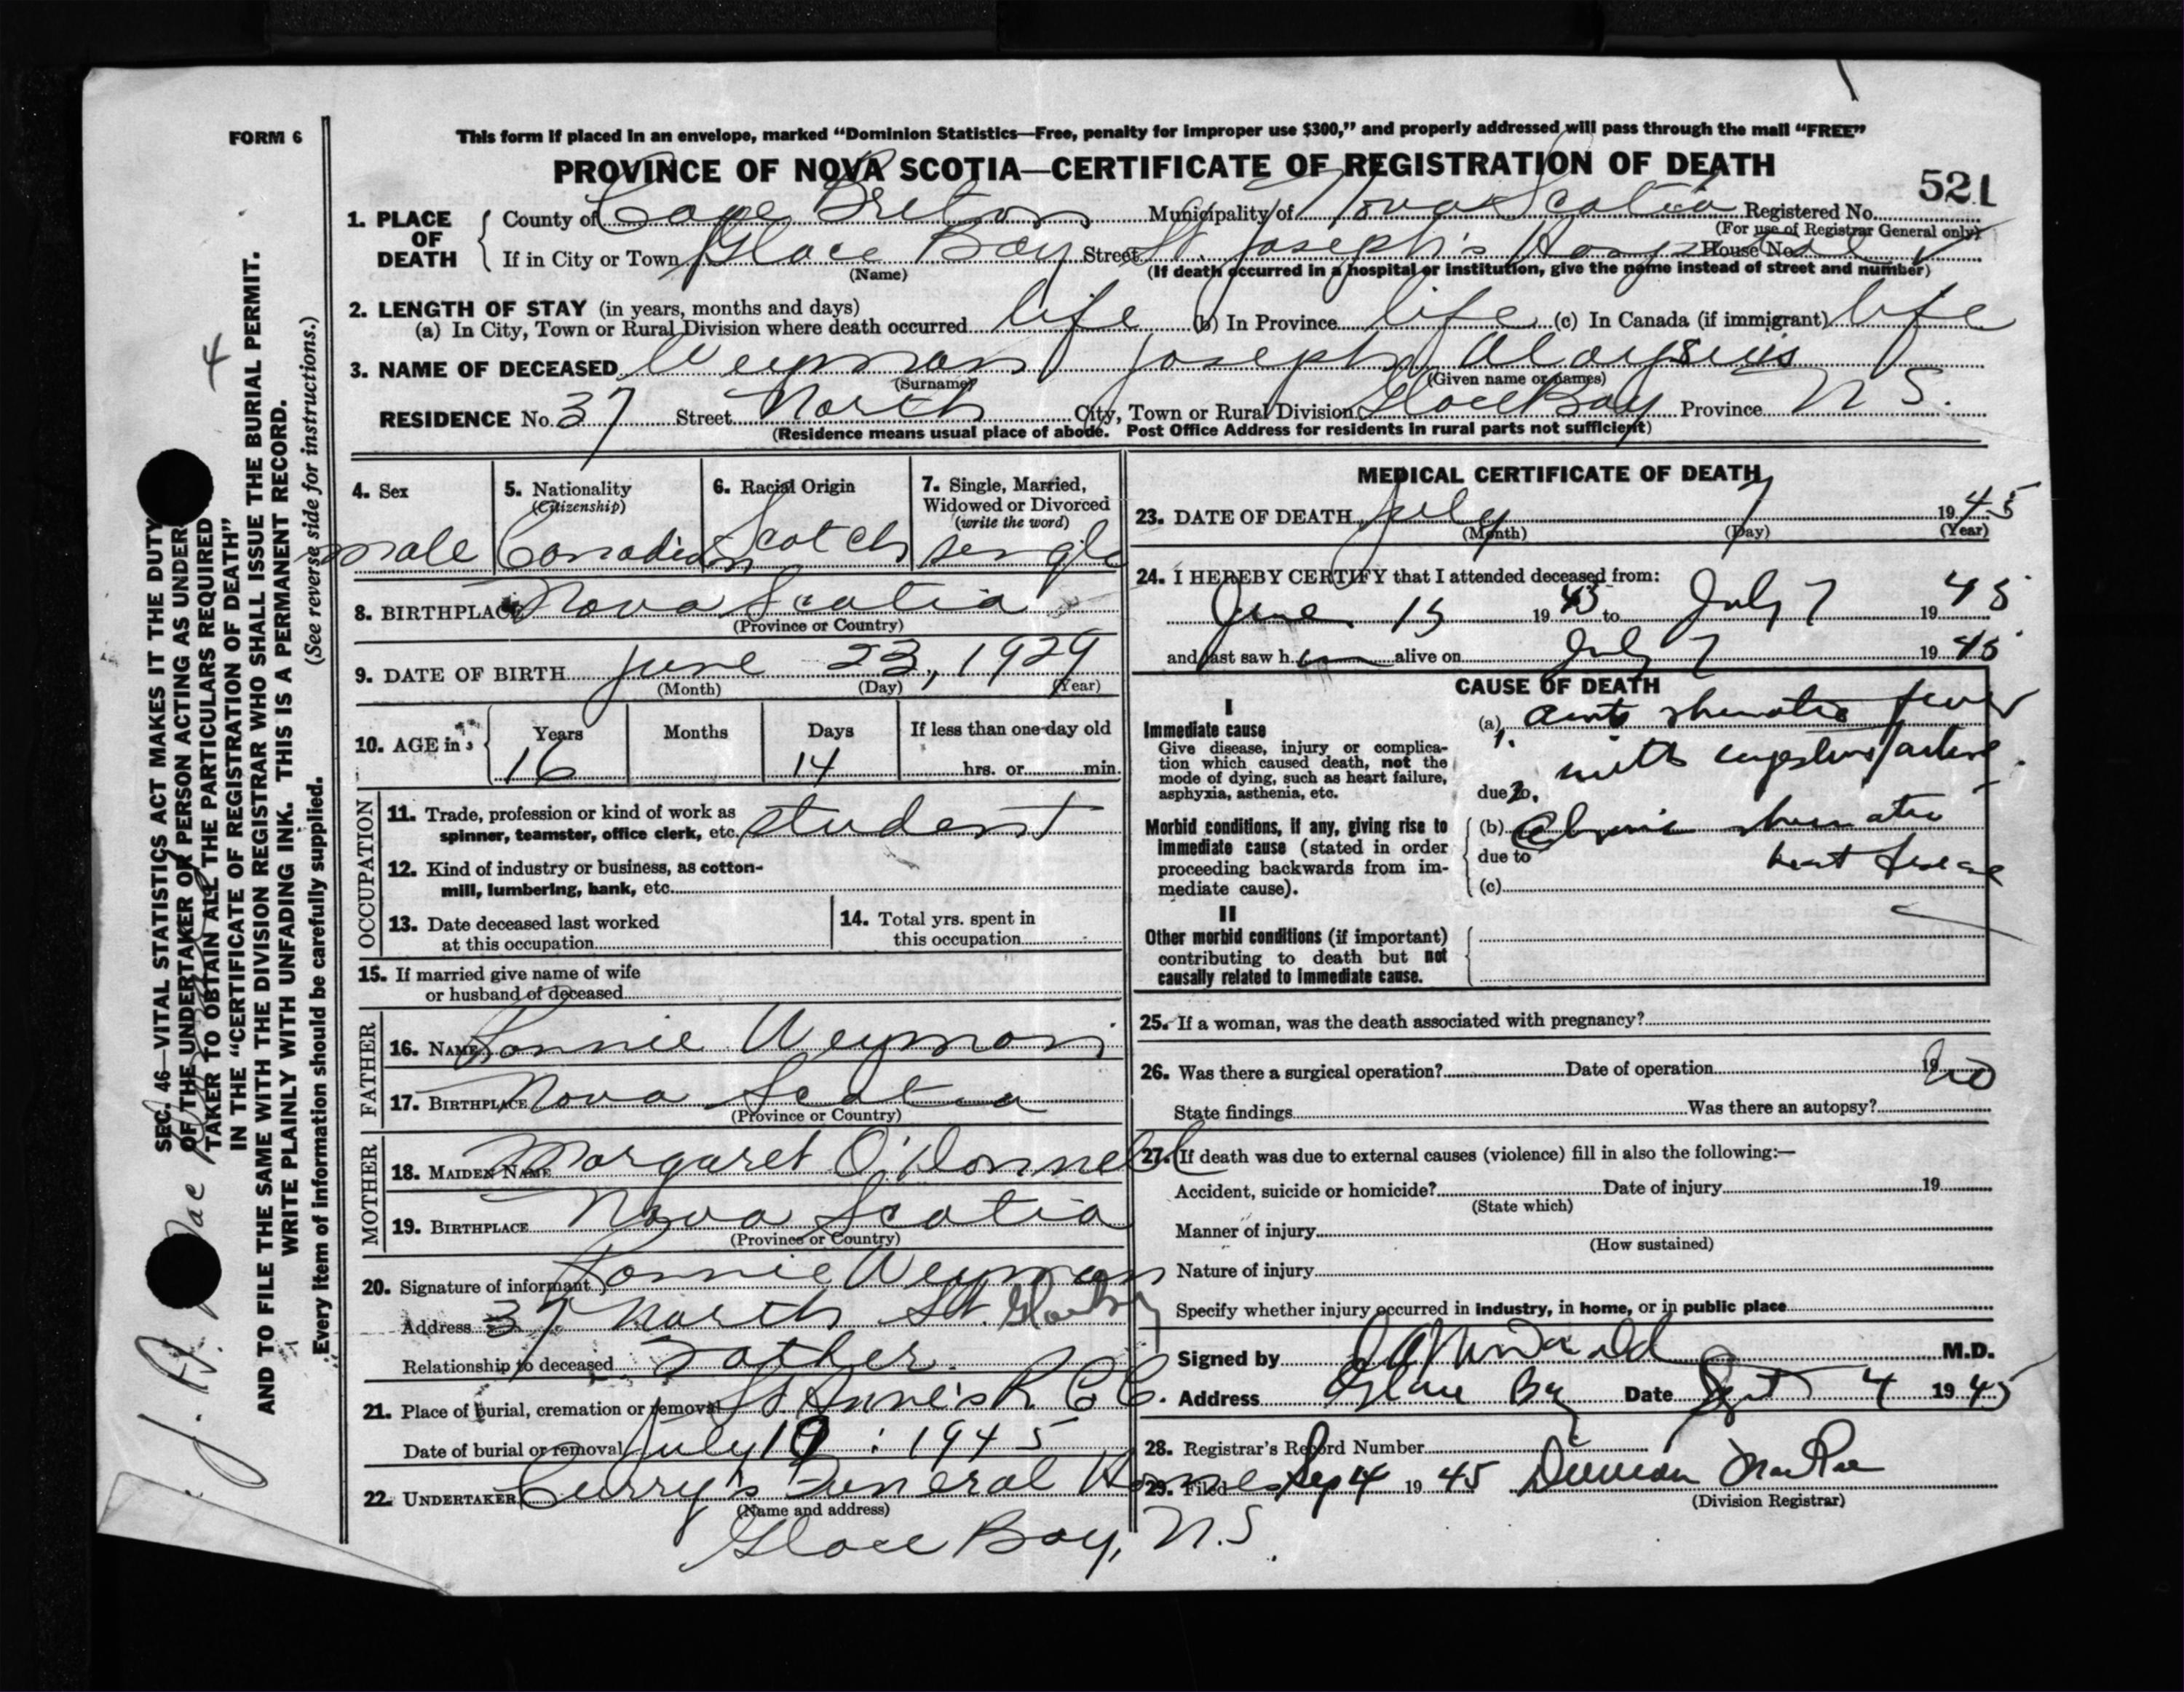 FORM 6
This form if placed in an envelope, marked "Dominion Statistics—Free, penalty for improper use $300," and properly addressed will pass through the mail "FREE"
PROVINCE OF NOVA SCOTIA—CERTIFICATE OF REGISTRATION OF DEATH
521
1. PLACE OF DEATH
County of Cape Breton Municipality of Nova Scotia Registered No.
(For use of Registrar General only)
If in City or Town Glace Bay Street St. Joseph's Hospital House No.
(Name) (If death occurred in a hospital or institution, give the name instead of street and number)
2. LENGTH OF STAY (in years, months and days)
(a) In City, Town or Rural Division where death occurred life (b) In Province life (c) In Canada (if immigrant) life
3. NAME OF DECEASED Weyman Joseph Aloysius
(Surname) (Given name or names)
RESIDENCE No. 37 Street North City, Town or Rural Division Glace Bay Province N S.
(Residence means usual place of abode. Post Office Address for residents in rural parts not sufficient)
4. Sex male
5. Nationality (Citizenship) Canadian
6. Racial Origin Scotch
7. Single, Married, Widowed or Divorced (write the word) single
8. BIRTHPLACE Nova Scotia
(Province or Country)
9. DATE OF BIRTH June 23, 1929
(Month) (Day) (Year)
10. AGE in Years 16 Months Days 14 If less than one day old
hrs. or min.
OCCUPATION
11. Trade, profession or kind of work as
spinner, teamster, office clerk, etc. student
12. Kind of industry or business, as cotton-
mill, lumbering, bank, etc.
13. Date deceased last worked
at this occupation
14. Total yrs. spent in
this occupation
15. If married give name of wife
or husband of deceased
FATHER
16. NAME Ronnie Weyman
17. BIRTHPLACE Nova Scotia
(Province or Country)
MOTHER
18. MAIDEN NAME Margaret O'Donnell
19. BIRTHPLACE Nova Scotia
(Province or Country)
20. Signature of informant Ronnie Weyman
Address 37 North St. Glace Bay
Relationship to deceased Father.
21. Place of burial, cremation or removal St Anne's R. C. C.
Date of burial or removal July 19 : 1945
22. UNDERTAKER Curry's Funeral Home
(Name and address)
Glace Bay, N.S.
MEDICAL CERTIFICATE OF DEATH
23. DATE OF DEATH July 7 1945
(Month) (Day) (Year)
24. I HEREBY CERTIFY that I attended deceased from:
June 15 1945 to July 7 1945
and last saw him alive on July 7 1945
CAUSE OF DEATH
I
Immediate cause
Give disease, injury or complica-
tion which caused death, not the
mode of dying, such as heart failure,
asphyxia, asthenia, etc.
(a) 1. acute rheumatic fever
with congestive failure.
due to 2.
Morbid conditions, if any, giving rise to
immediate cause (stated in order
proceeding backwards from im-
mediate cause).
(b) Chronic rheumatic
due to heart disease
(c)
II
Other morbid conditions (if important)
contributing to death but not
causally related to immediate cause.
25. If a woman, was the death associated with pregnancy?
26. Was there a surgical operation? Date of operation 19 no
State findings Was there an autopsy?
27. If death was due to external causes (violence) fill in also the following:—
Accident, suicide or homicide? Date of injury 19
(State which)
Manner of injury
(How sustained)
Nature of injury
Specify whether injury occurred in industry, in home, or in public place
Signed by McDonald M.D.
Address Glace Bay Date Sept 4 1945
28. Registrar's Record Number
29. Filed Sep 4 1945 Duncan MacRae
(Division Registrar)
SEC. 46—VITAL STATISTICS ACT MAKES IT THE DUTY
OF THE UNDERTAKER OR PERSON ACTING AS UNDER
TAKER TO OBTAIN ALL THE PARTICULARS REQUIRED
IN THE "CERTIFICATE OF REGISTRATION OF DEATH"
AND TO FILE THE SAME WITH THE DIVISION REGISTRAR WHO SHALL ISSUE THE BURIAL PERMIT.
WRITE PLAINLY WITH UNFADING INK. THIS IS A PERMANENT RECORD.
Every item of information should be carefully supplied. (See reverse side for instructions.)
4